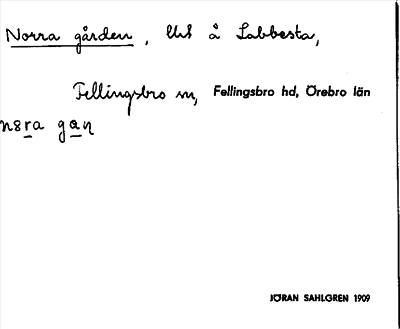 Norra gården, Ut å Labbesta,
Fellingsbro sn, Fellingsbro hd, Örebro län
nɞra gaɳ
JÖRAN SAHLGREN 1909